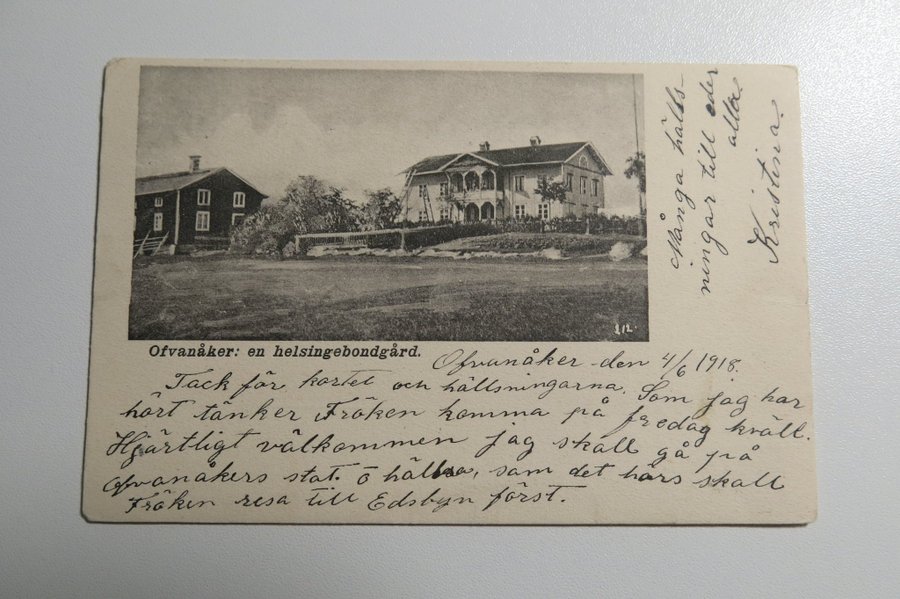 Ofvanåker: en helsingebondgård.
112.
Ofvanåker den 4/6 1918.
Tack för kortet och hällsningarna. Som jag har
hört tänker Fröken komma på fredag kväll.
Hjärtligt välkommen jag skall gå på
Ofvanåkers stat. o hällsa, som det hörs skall
Fröken resa till Edsbyn först.
Många hälls-
ningar till eder
alla
Kristina.